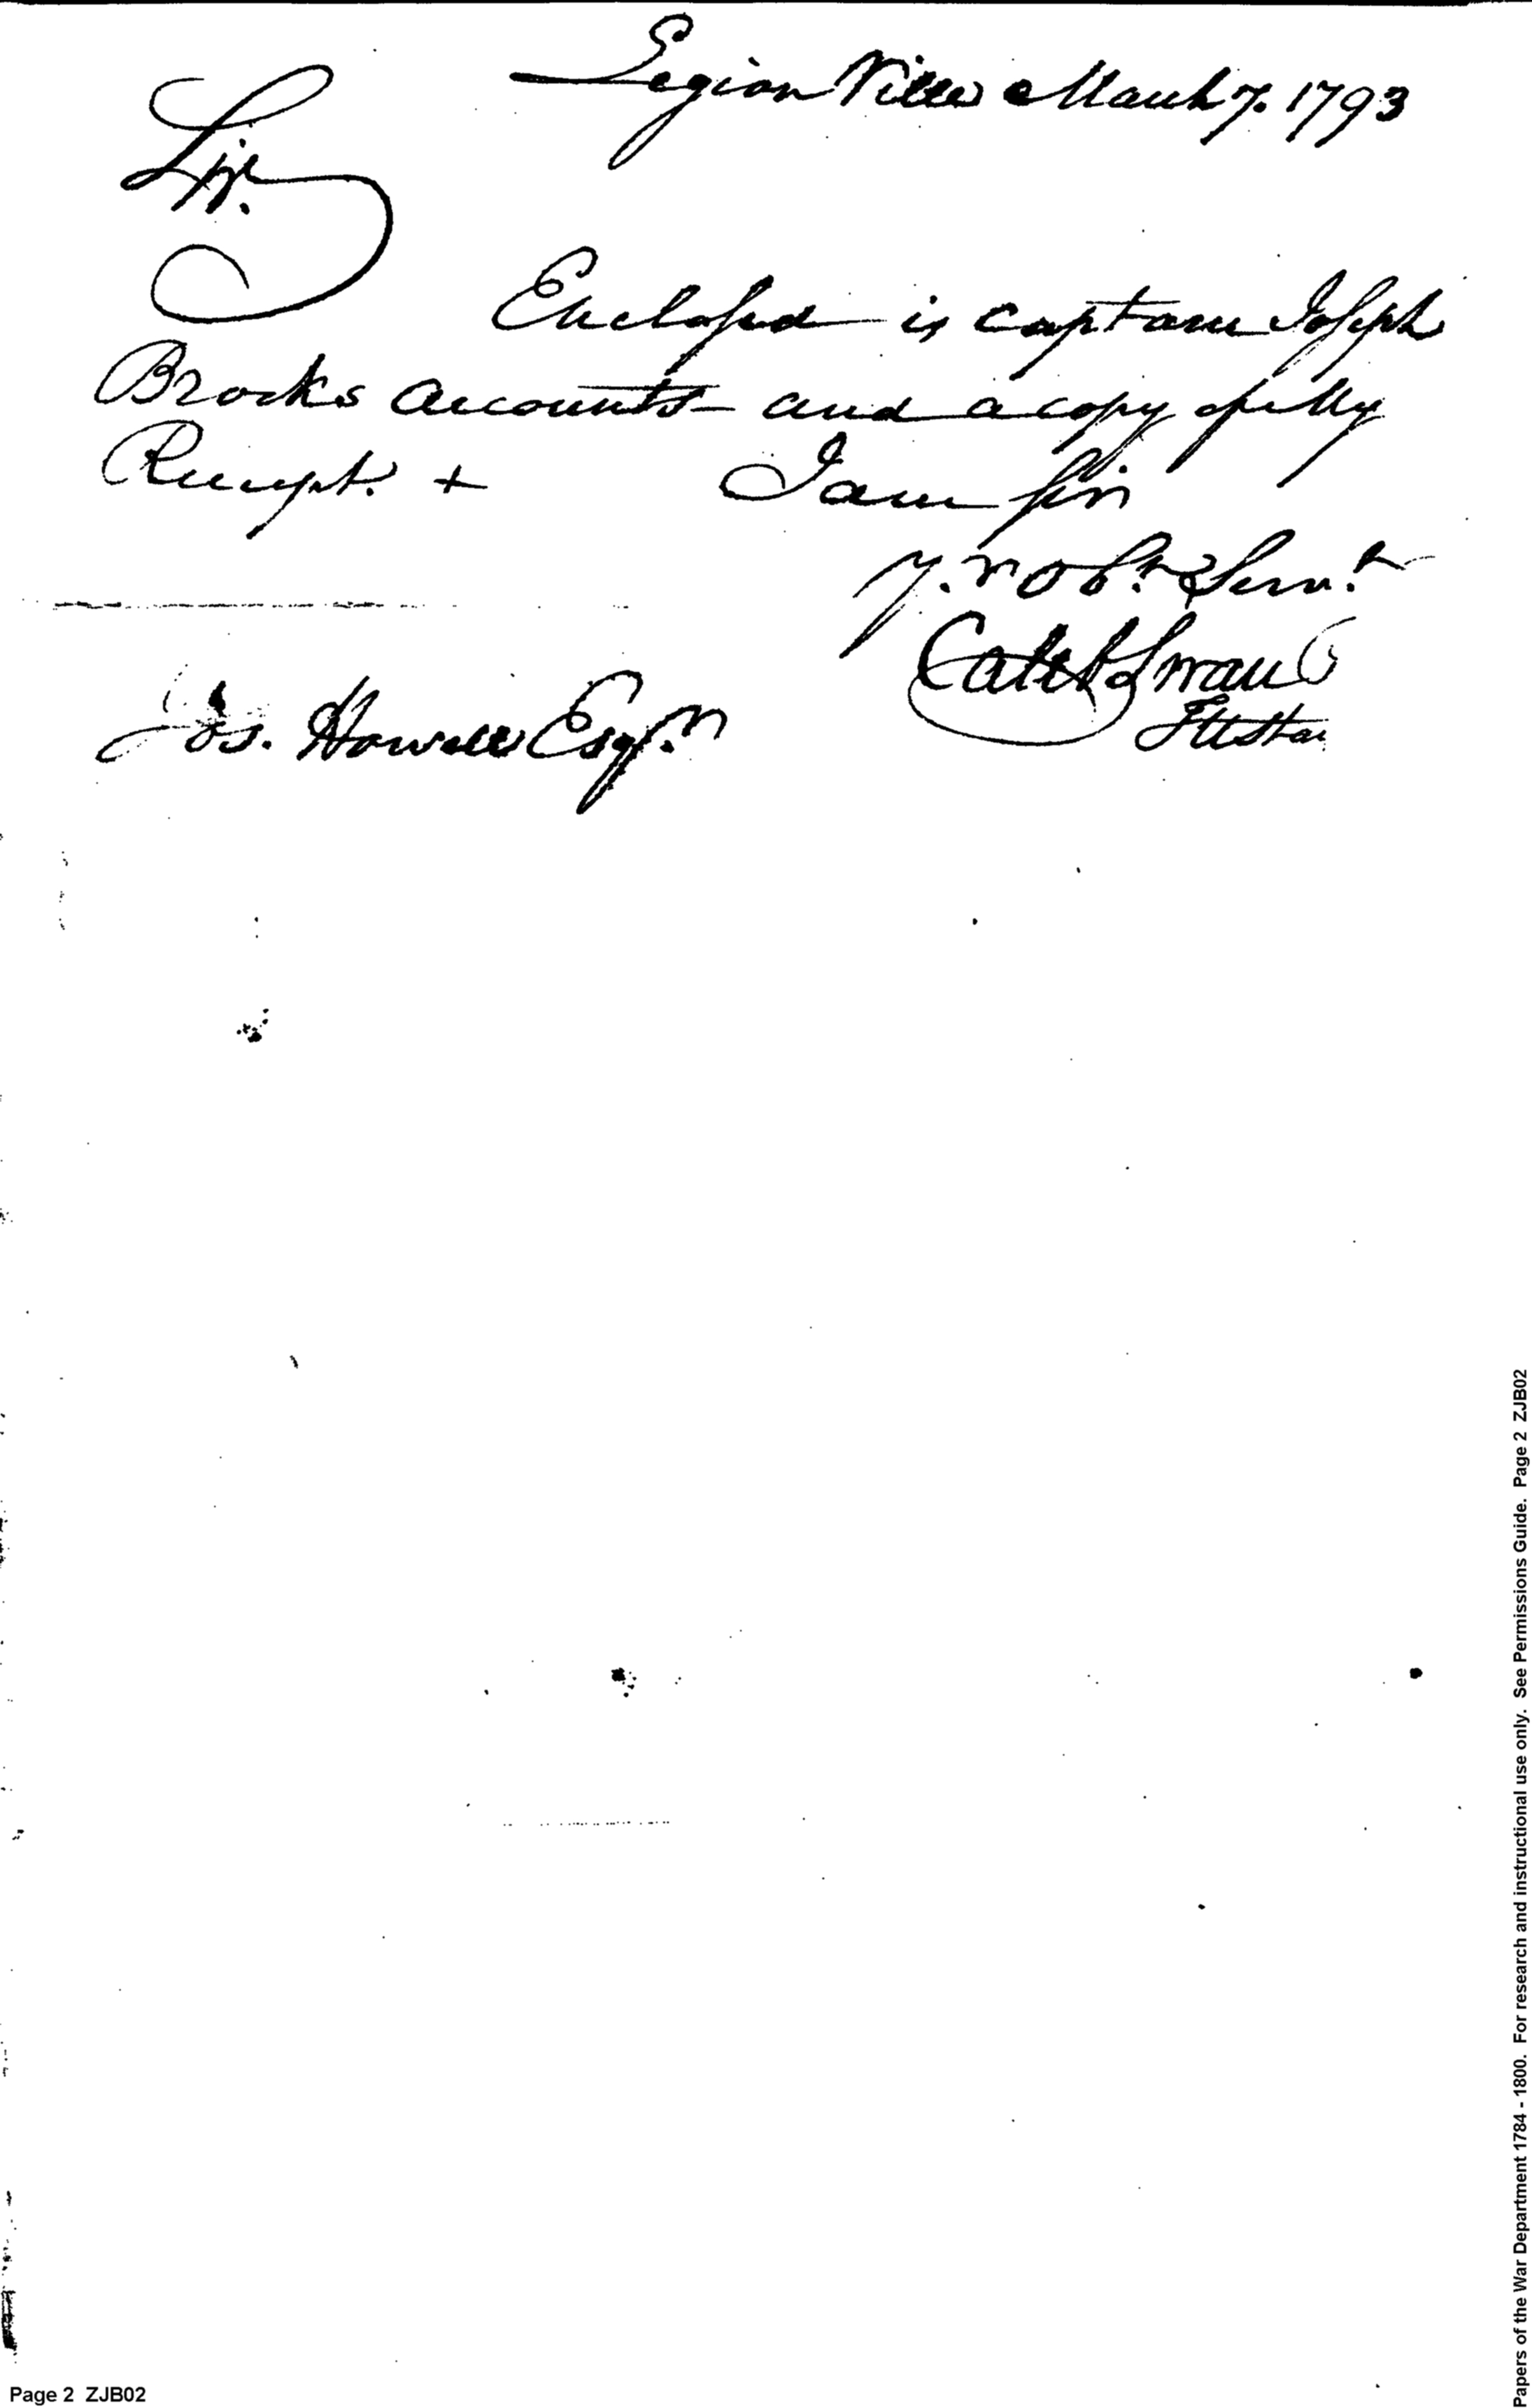 Legion Ville March 7. 1793
Sir.
Enclosed is captain Joseph
Brocks accounts and a copy of my
Receipt. + I am Sir
y. r ob.t Serv.t
Caleb Swan
Jos. Howell Esq.r
Page 2 ZJB02
Papers of the War Department 1784 - 1800. For research and instructional use only. See Permissions Guide. Page 2 ZJB02